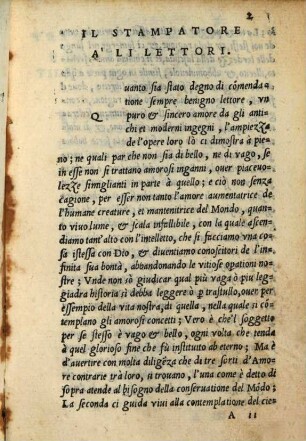 2
IL STAMPATORE
A' LI LETTORI.
Quanto sia stato degno di cōmenda
tione sempre benigno lettore, vn
puro & sincero amore da gli anti-
chi et moderni ingegni, l'ampiezza
de l'opere loro lò ci dimostrà à pie-
no; ne quali par che non sia di bello, ne di vago, se
in esse non si trattano amorosi inganni, ouer piaceuo-
lezze simiglianti in parte à quello; e ciò non senza
cagione, per esser non tanto l'amore aumentatrice de
l'humane creature, et mantenitrice del Mondo, quan-
to viuo lume, & scala infallibile, con la qual ascen-
diamo tant'alto con l'intelletto, che si facciamo vna co
sa istessa con Dio, & diuentiamo conoscitori de l'in-
finita sua bontà, abbandonando le vitiose opationi no-
stre; Vnde non sò giudicar qual più vaga ò piu leg-
giadra historia si debba leggere ò p trastullo, ouer per
essempio della vita nostra, di quella, nella quale si cō-
templano gli amorosi concetti; Vero è che'l soggetto
per se stesso è vago & bello, ogni volta che tenda à
quel glorioso fine che fù instituto ab eterno; Ma è
d'auertire con molta diligēza che di tre sorti d'Amo-
re contrarie trà loro, si trouano, l'una come è detto di
sopra atende al bisogno della conseruatione del Mōdo;
La seconda ci guida viui alla contemplatione del cie-
A ii